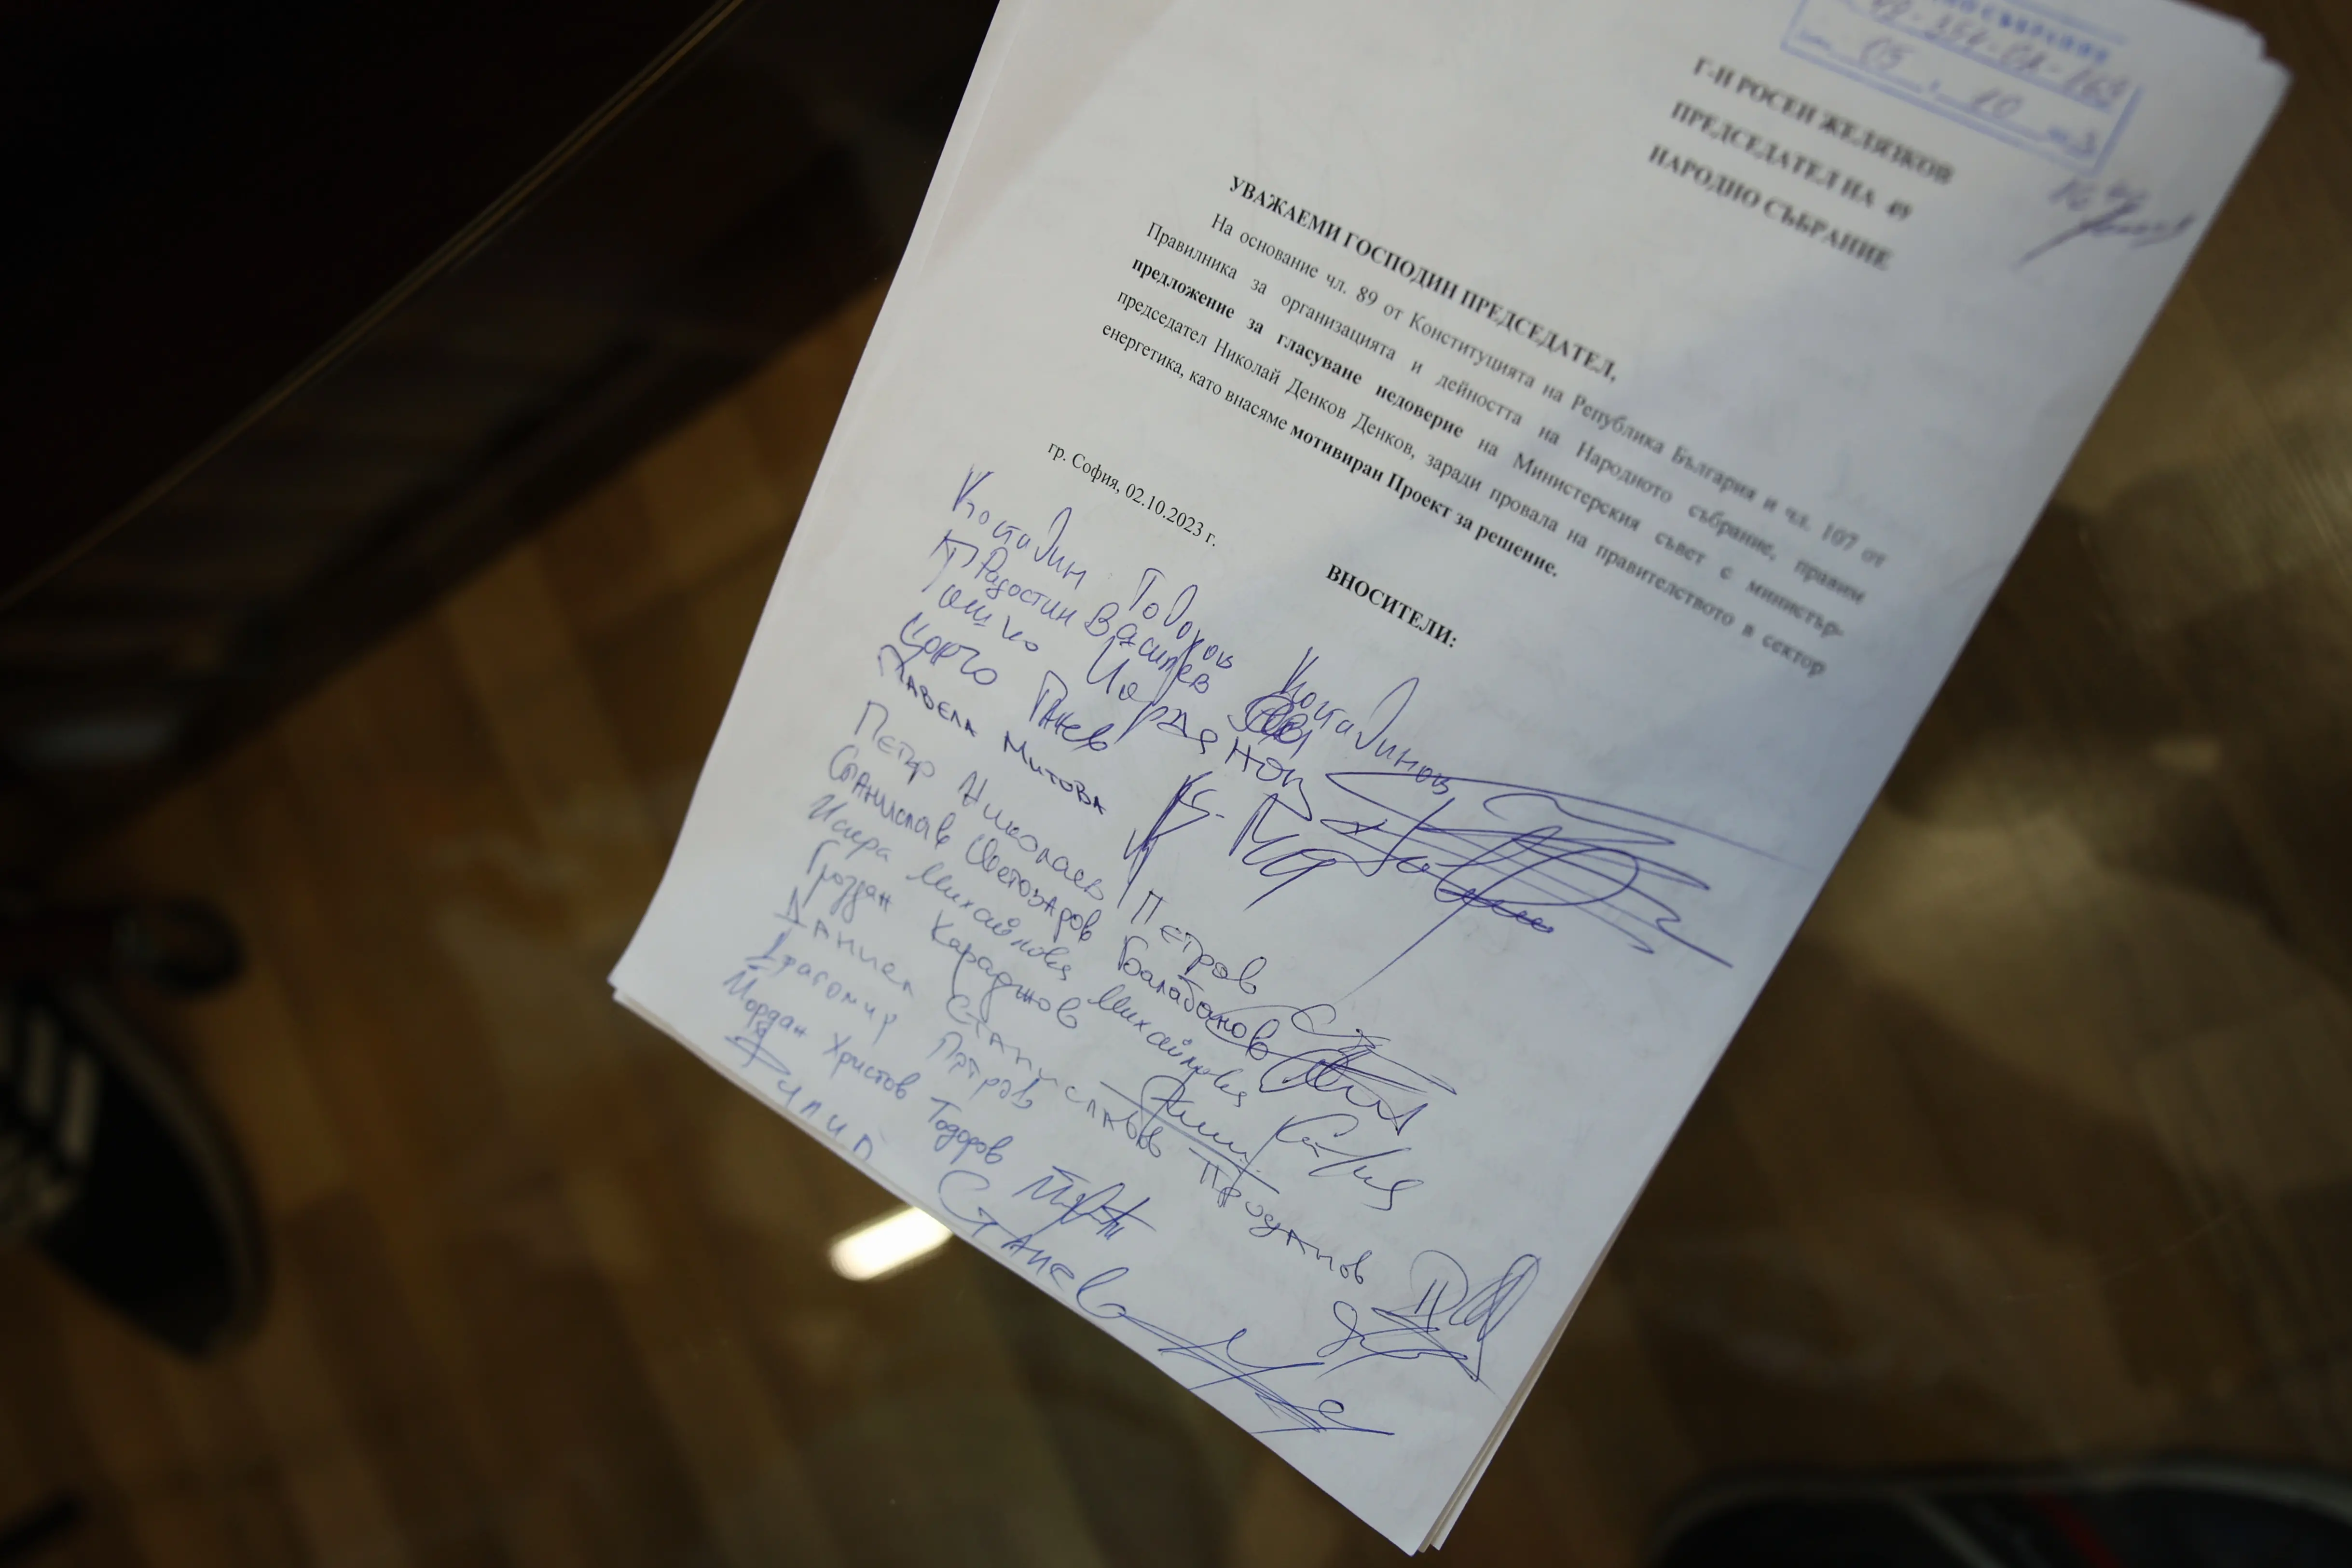 49-354-01-163
05 . 10
Г-Н РОСЕН ЖЕЛЯЗКОВ
ПРЕДСЕДАТЕЛ НА 49
НАРОДНО СЪБРАНИЕ
УВАЖАЕМИ ГОСПОДИН ПРЕДСЕДАТЕЛ,
На основание чл. 89 от Конституцията на Република България и чл. 107 от
Правилника за организацията и дейността на Народното събрание, правим
предложение за гласуване недоверие на Министерския съвет с министър-
председател Николай Денков Денков, заради провала на правителството в сектор
енергетика, като внасяме мотивиран Проект за решение.
гр. София, 02.10.2023 г.
ВНОСИТЕЛИ:
Костадин Тодоров Костадинов
Радостин Василев
Тошко Йорданов
Цончо Ганев
Павела Митова
Петър Николаев Петров
Станислав Светозаров Балабанов
Искра Михайлова Михайлова
Гроздан Караджов
Даниел Станиславов Проданов
Драгомир Петров
Йордан Христов Тодоров
Филип Станев